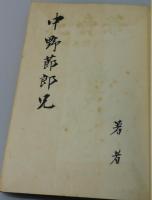 中野節郎兄
著者